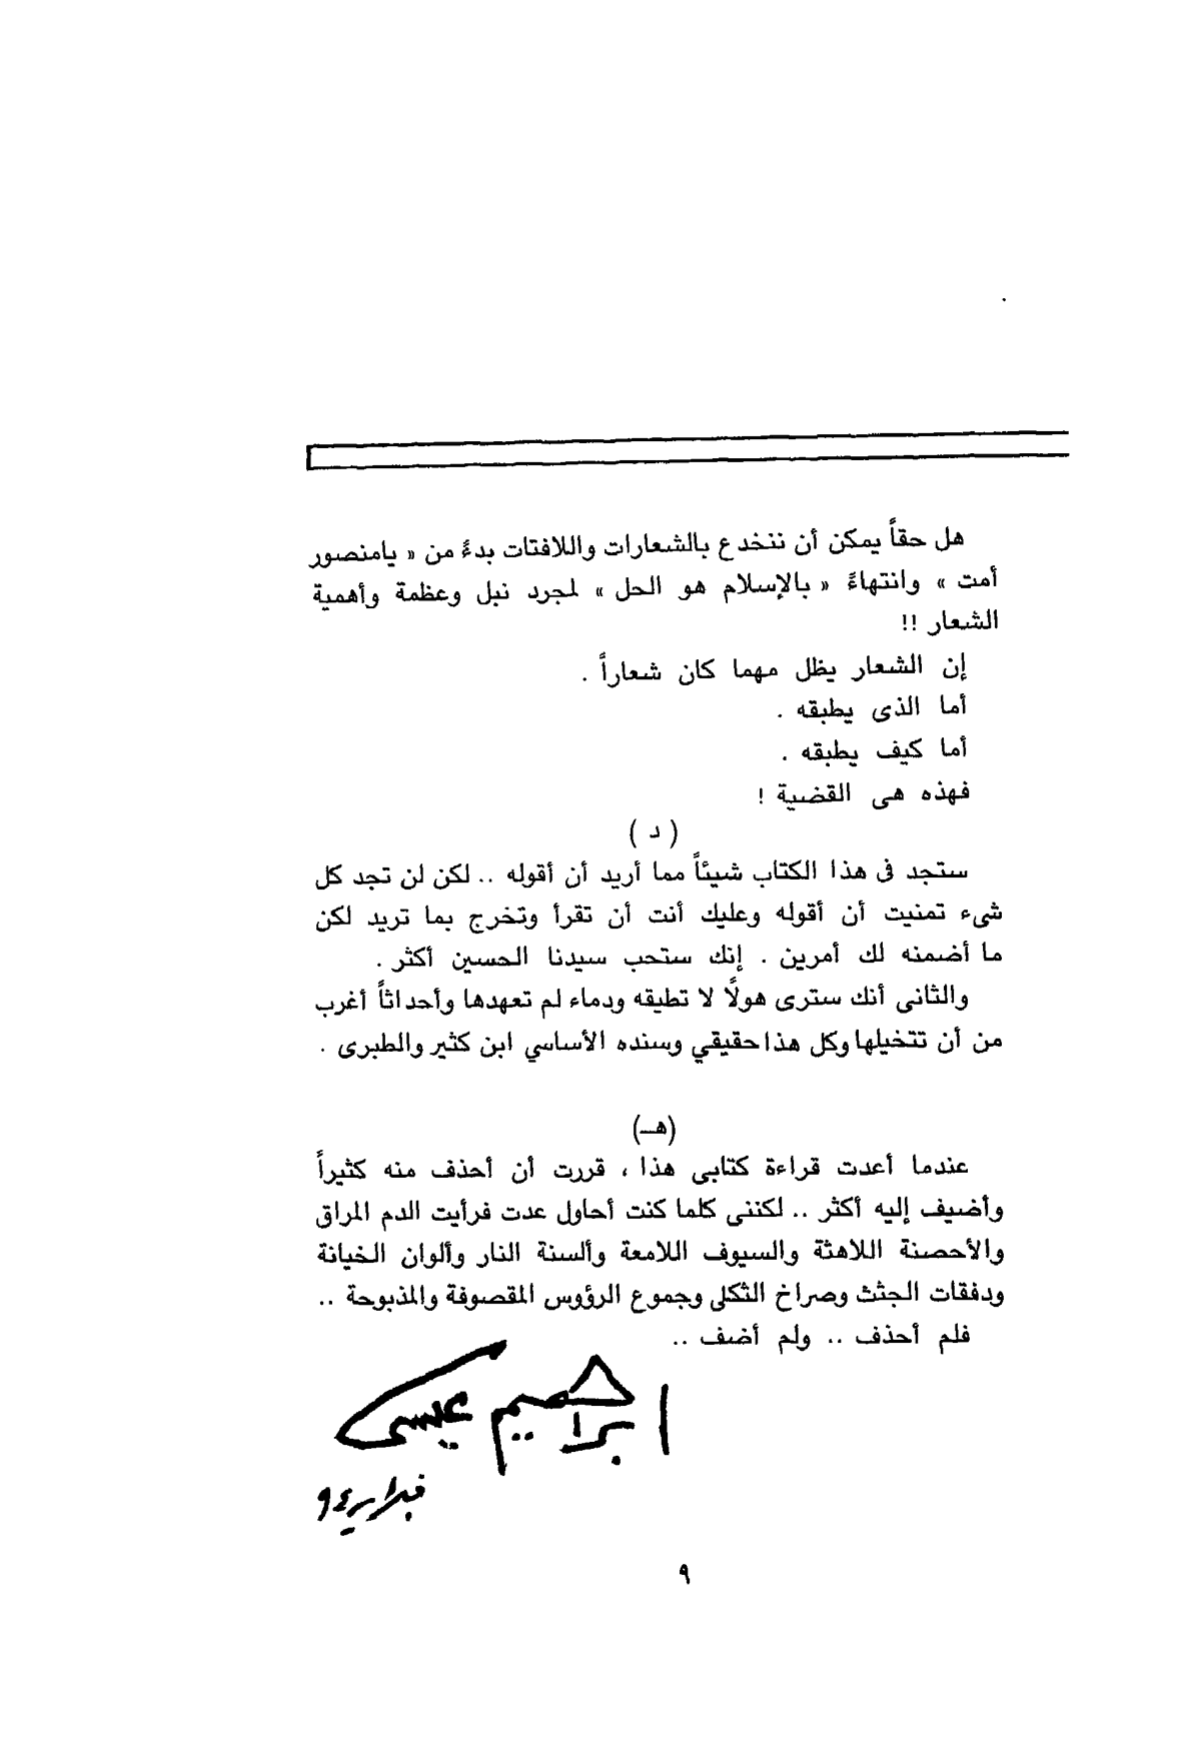 هل حقاً يمكن أن ننخدع بالشعارات واللافتات بدءً من « يامنصور
أمت » وانتهاءً « بالإسلام هو الحل » لمجرد نبل وعظمة وأهمية
الشعار !!
إن الشعار يظل مهما كان شعاراً .
أما الذى يطبقه .
أما كيف يطبقه .
فهذه هى القضية !
( د )
ستجد فى هذا الكتاب شيئاً مما أريد أن أقوله .. لكن لن تجد كل
شىء تمنيت أن أقوله وعليك أنت أن تقرأ وتخرج بما تريد لكن
ما أضمنه لك أمرين . إنك ستحب سيدنا الحسين أكثر .
والثانى أنك سترى هولًا لا تطيقه ودماء لم تعهدها وأحداثاً أغرب
من أن تتخيلها وكل هذا حقيقي وسنده الأساسي ابن كثير والطبرى .
(هـ)
عندما أعدت قراءة كتابى هذا ، قررت أن أحذف منه كثيراً
وأضيف إليه أكثر .. لكننى كلما كنت أحاول عدت فرأيت الدم المراق
والأحصنة اللاهثة والسيوف اللامعة وألسنة النار وألوان الخيانة
ودفقات الجثث وصراخ الثكلى وجموع الرؤوس المقصوفة والمذبوحة ..
فلم أحذف .. ولم أضف ..
ابراهيم عيسى
فبراير ٩٤
٩